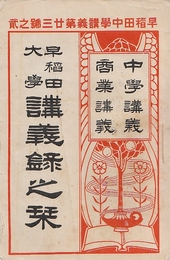 早稻田中學講義第廿三號之貳
中學講義
商業講義
早稻田
大學
講義錄之栞